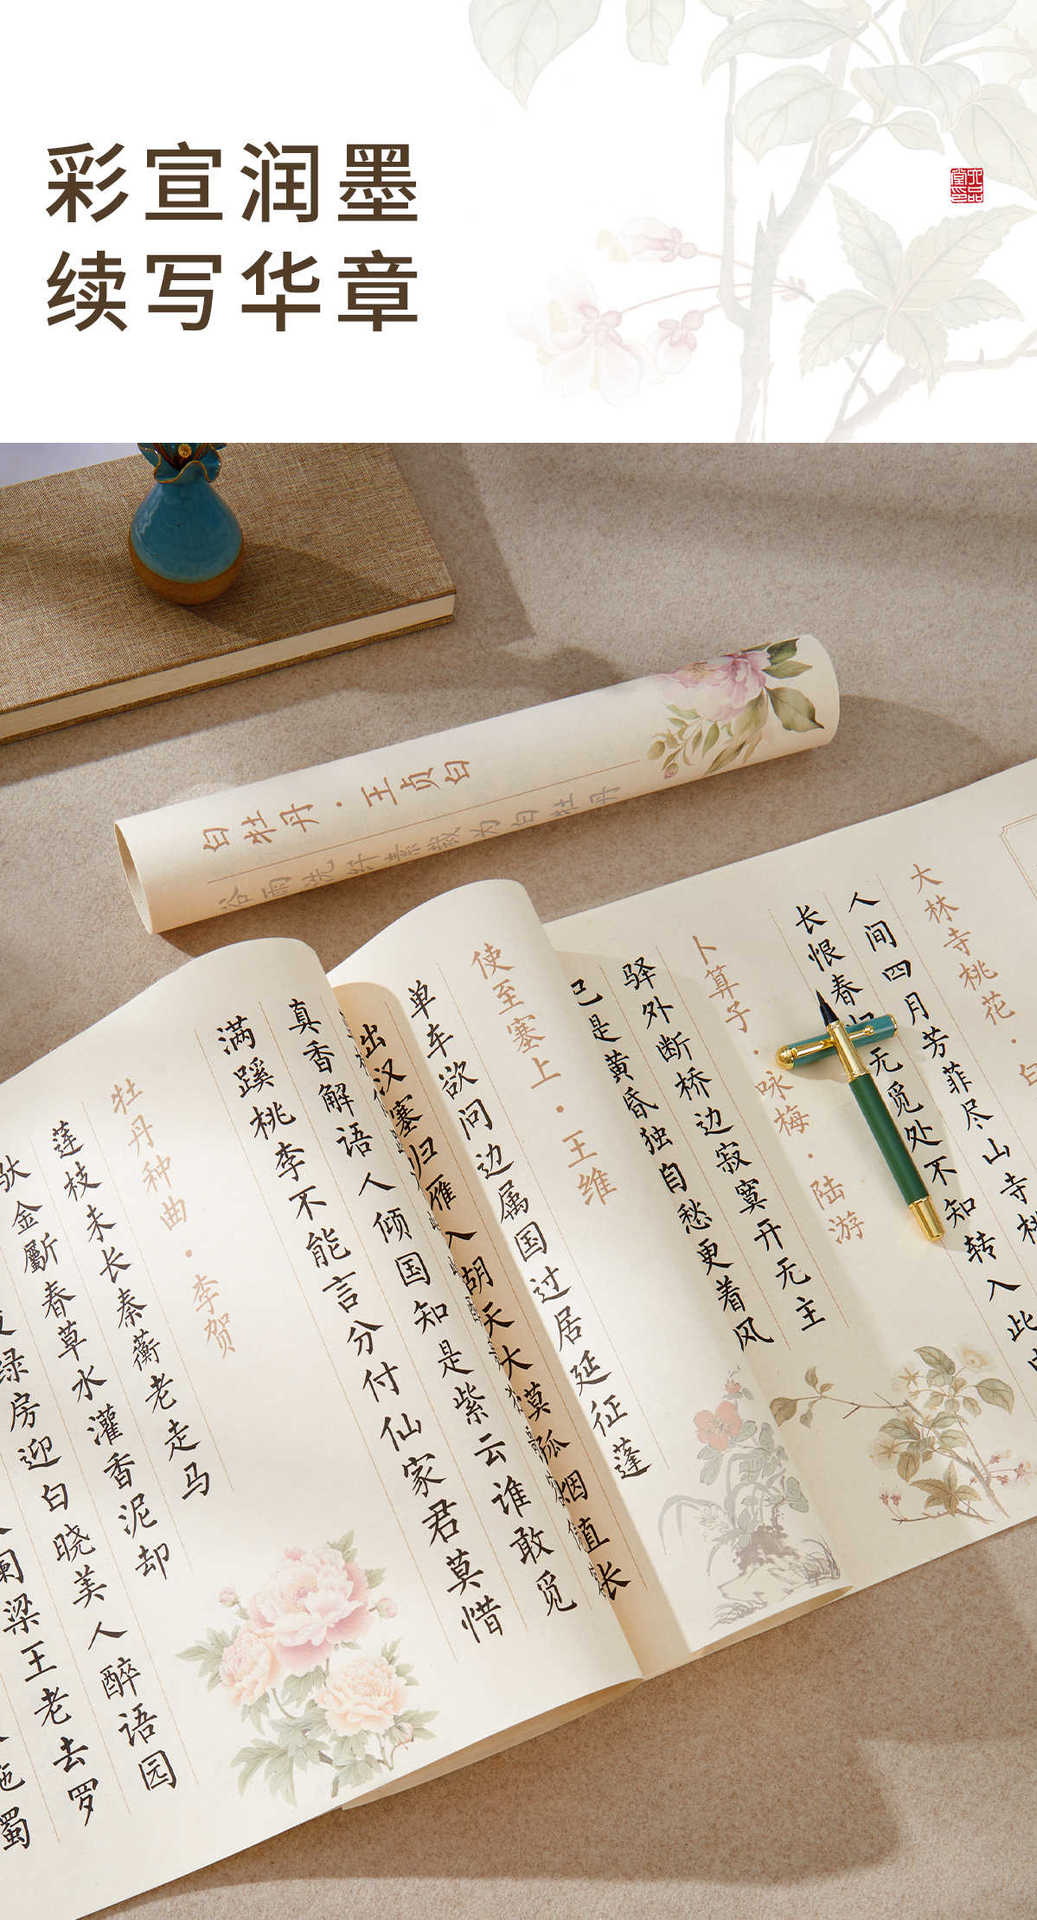 彩宣润墨
续写华章
六品堂印
白牡丹·王贞白
谷雨洗纤素裁为白牡丹
大林寺桃花·白
人间四月芳菲尽山寺桃
长恨春归无觅处不知转入此中
卜算子·咏梅·陆游
驿外断桥边寂寞开无主
已是黄昏独自愁更着风
使至塞上·王维
单车欲问边属国过居延征蓬
出汉塞归雁入胡天大漠孤烟直长
真香解语人倾国知是紫云谁敢觅
满蹊桃李不能言分付仙家君莫惜
牡丹种曲·李贺
莲枝未长秦蘅老走马
驮金斸春草水灌香泥却
绿房迎白晓美人醉语园
阑梁王老去罗
拖蜀